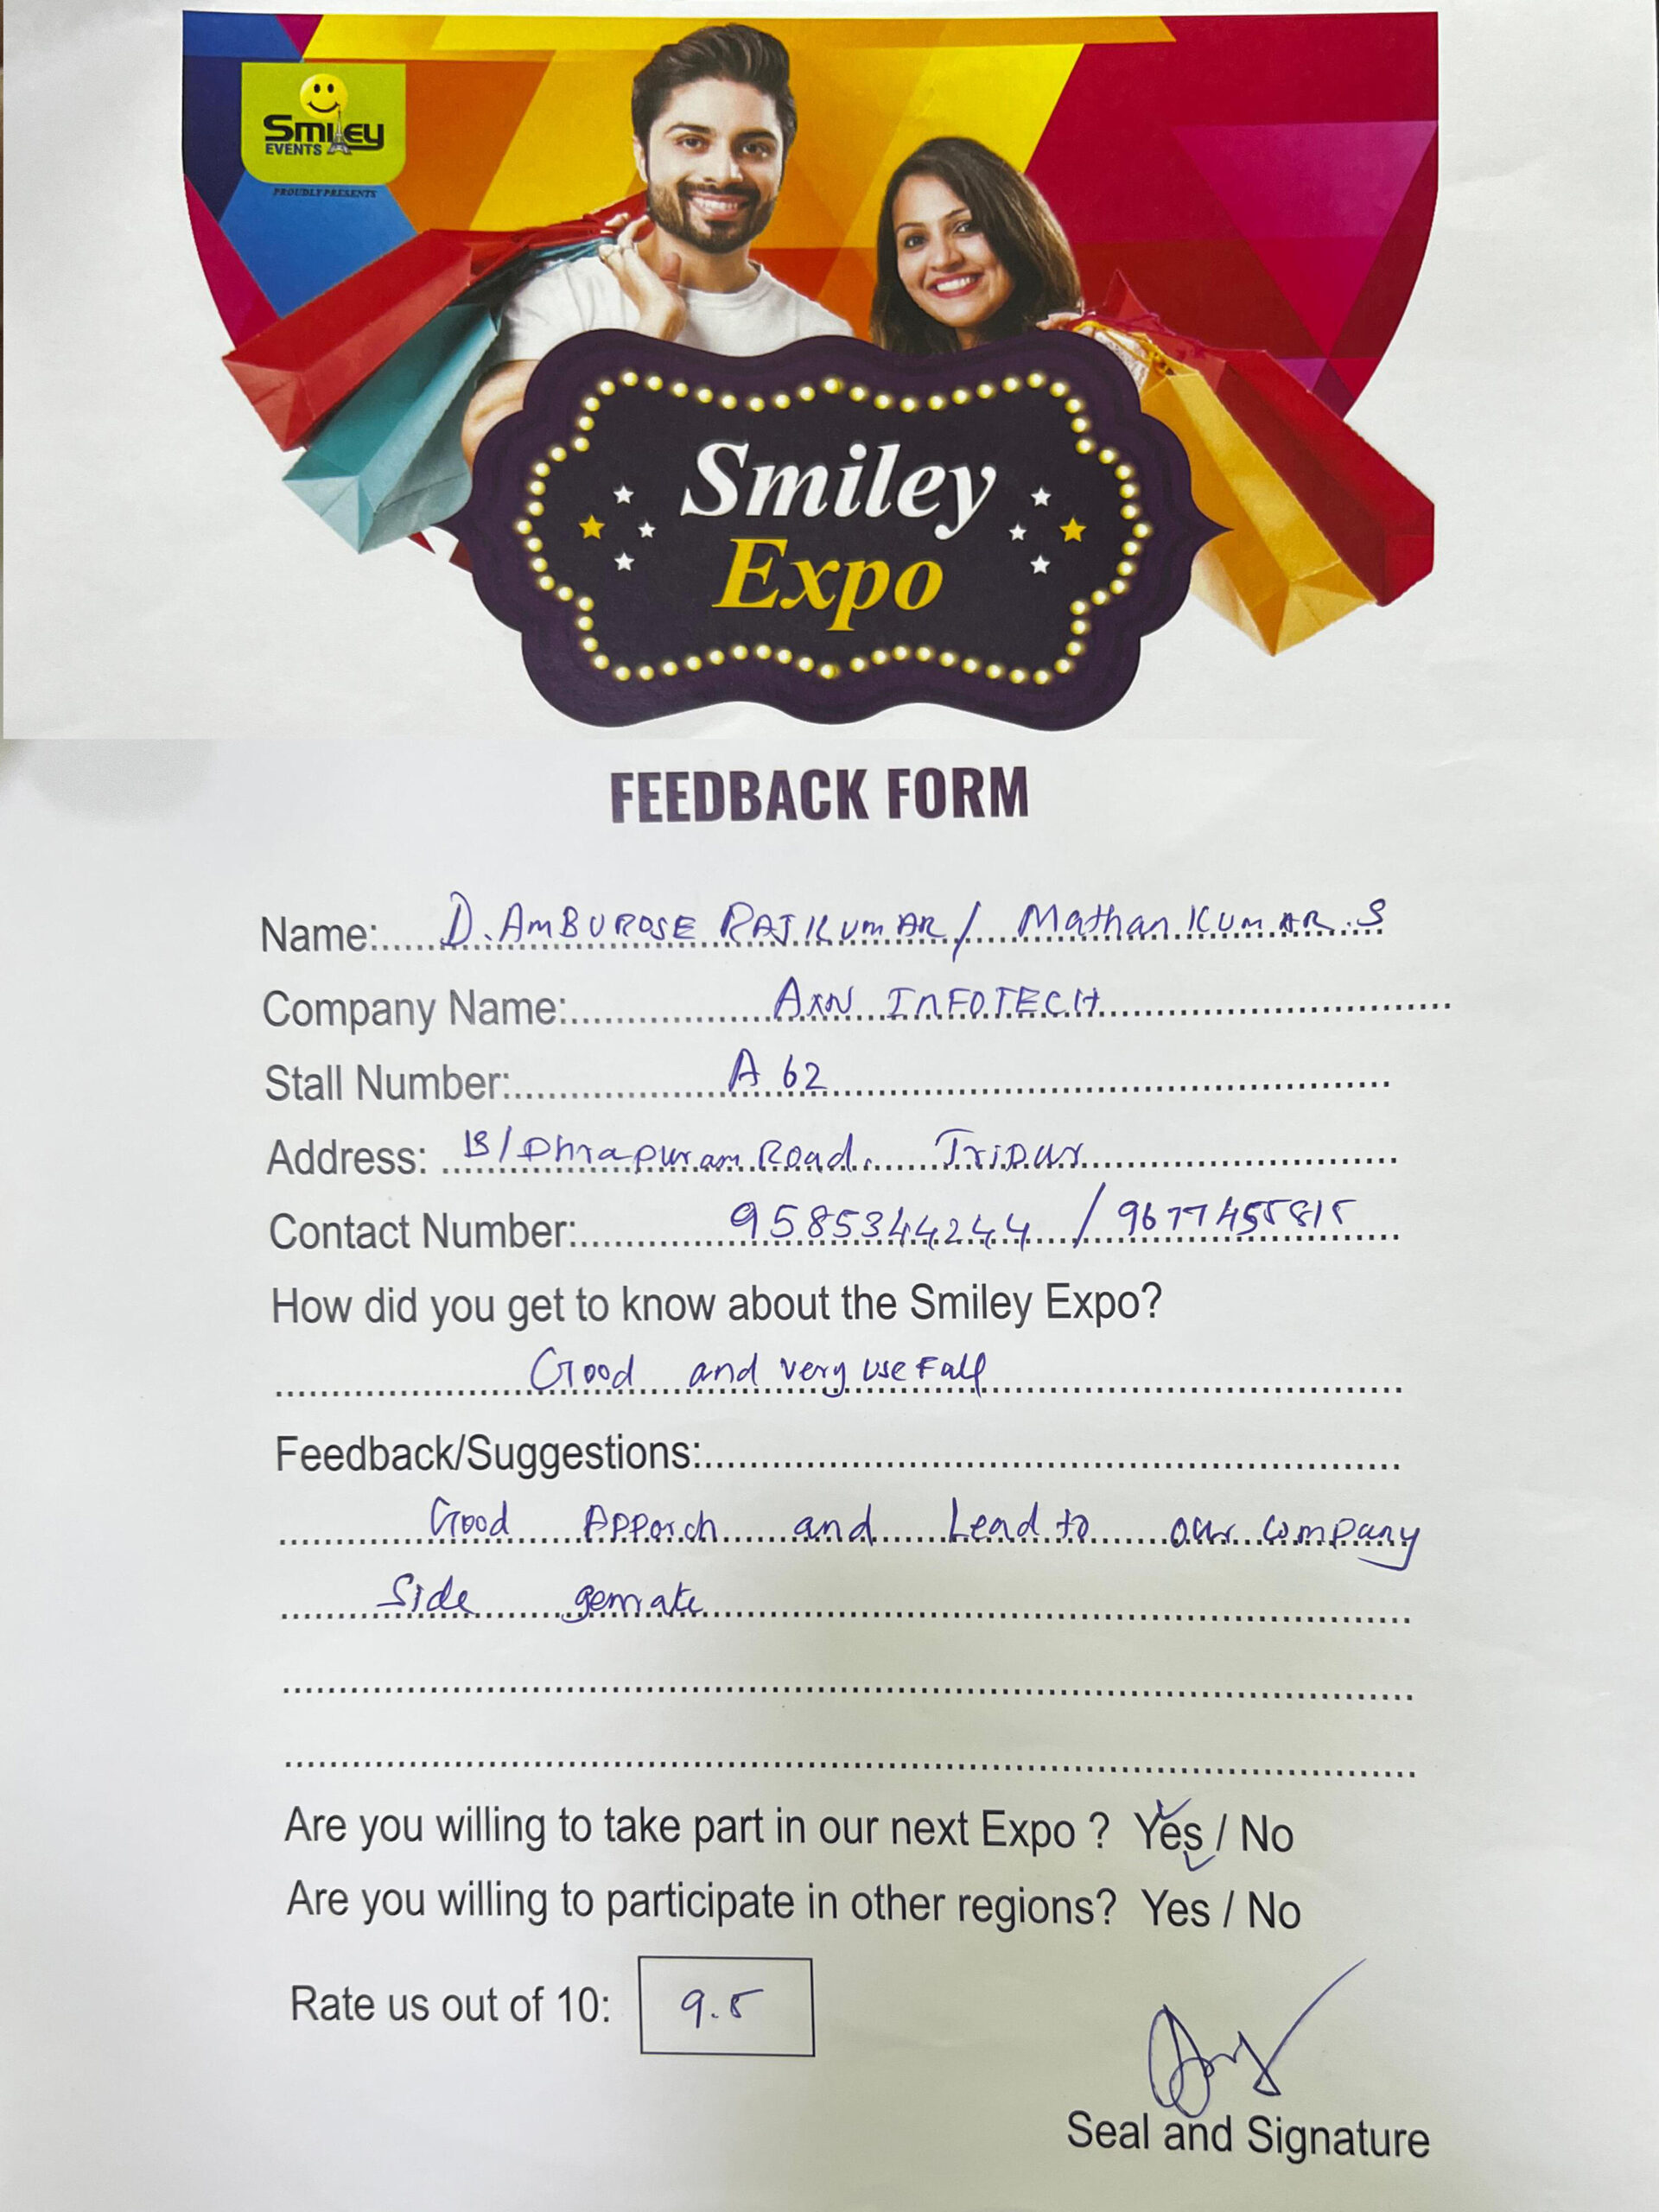 Smiley
EVENTS
PROUDLY PRESENTS
Smiley
Expo
FEEDBACK FORM
Name: D. AMBUROSE RAJKUMAR / Mathan KUMAR.S
Company Name: AXN INFOTECH
Stall Number: A 62
Address: B/Dhrapuram Road. Tripur
Contact Number: 9585344244 / 9677455815
How did you get to know about the Smiley Expo?
Good and very useFall
Feedback/Suggestions:
Good Apporch and Lead to our company
Side genrate
Are you willing to take part in our next Expo ? Yes / No
Are you willing to participate in other regions? Yes / No
Rate us out of 10: 9.5
Seal and Signature